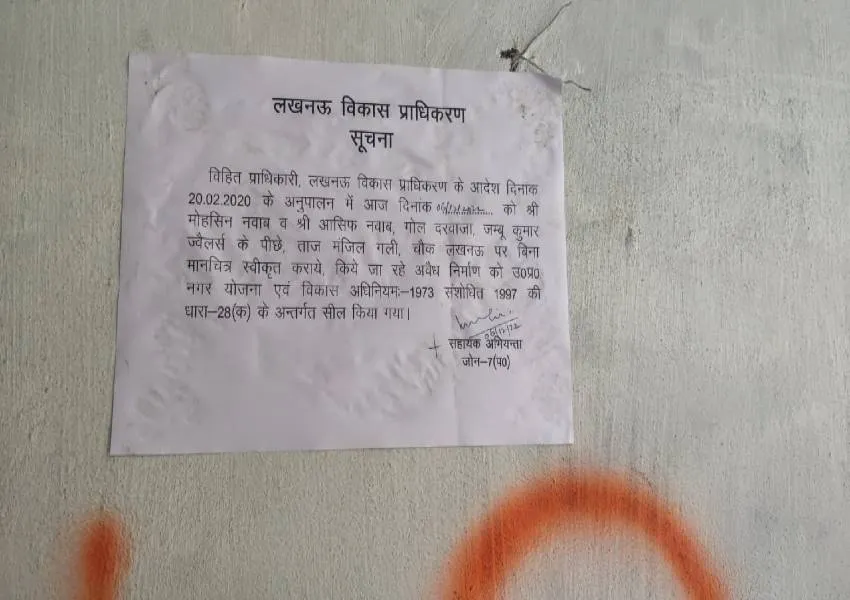 लखनऊ विकास प्राधिकरण
सूचना
विहित प्राधिकारी, लखनऊ विकास प्राधिकरण के आदेश दिनांक
20.02.2020 के अनुपालन में आज दिनांक को श्री
मोहसिन नवाब व श्री आसिफ नवाब, गोल दरवाजा, जम्बू कुमार
ज्वैलर्स के पीछे, ताज मंजिल गली, चौक लखनऊ पर बिना
मानचित्र स्वीकृत कराये, किये जा रहे अवैध निर्माण को उ0प्र0
नगर योजना एवं विकास अधिनियमः–1973 संशोधित 1997 की
धारा–28(क) के अन्तर्गत सील किया गया।
06/12/22
सहायक अभियन्ता
जोन–7(प0)